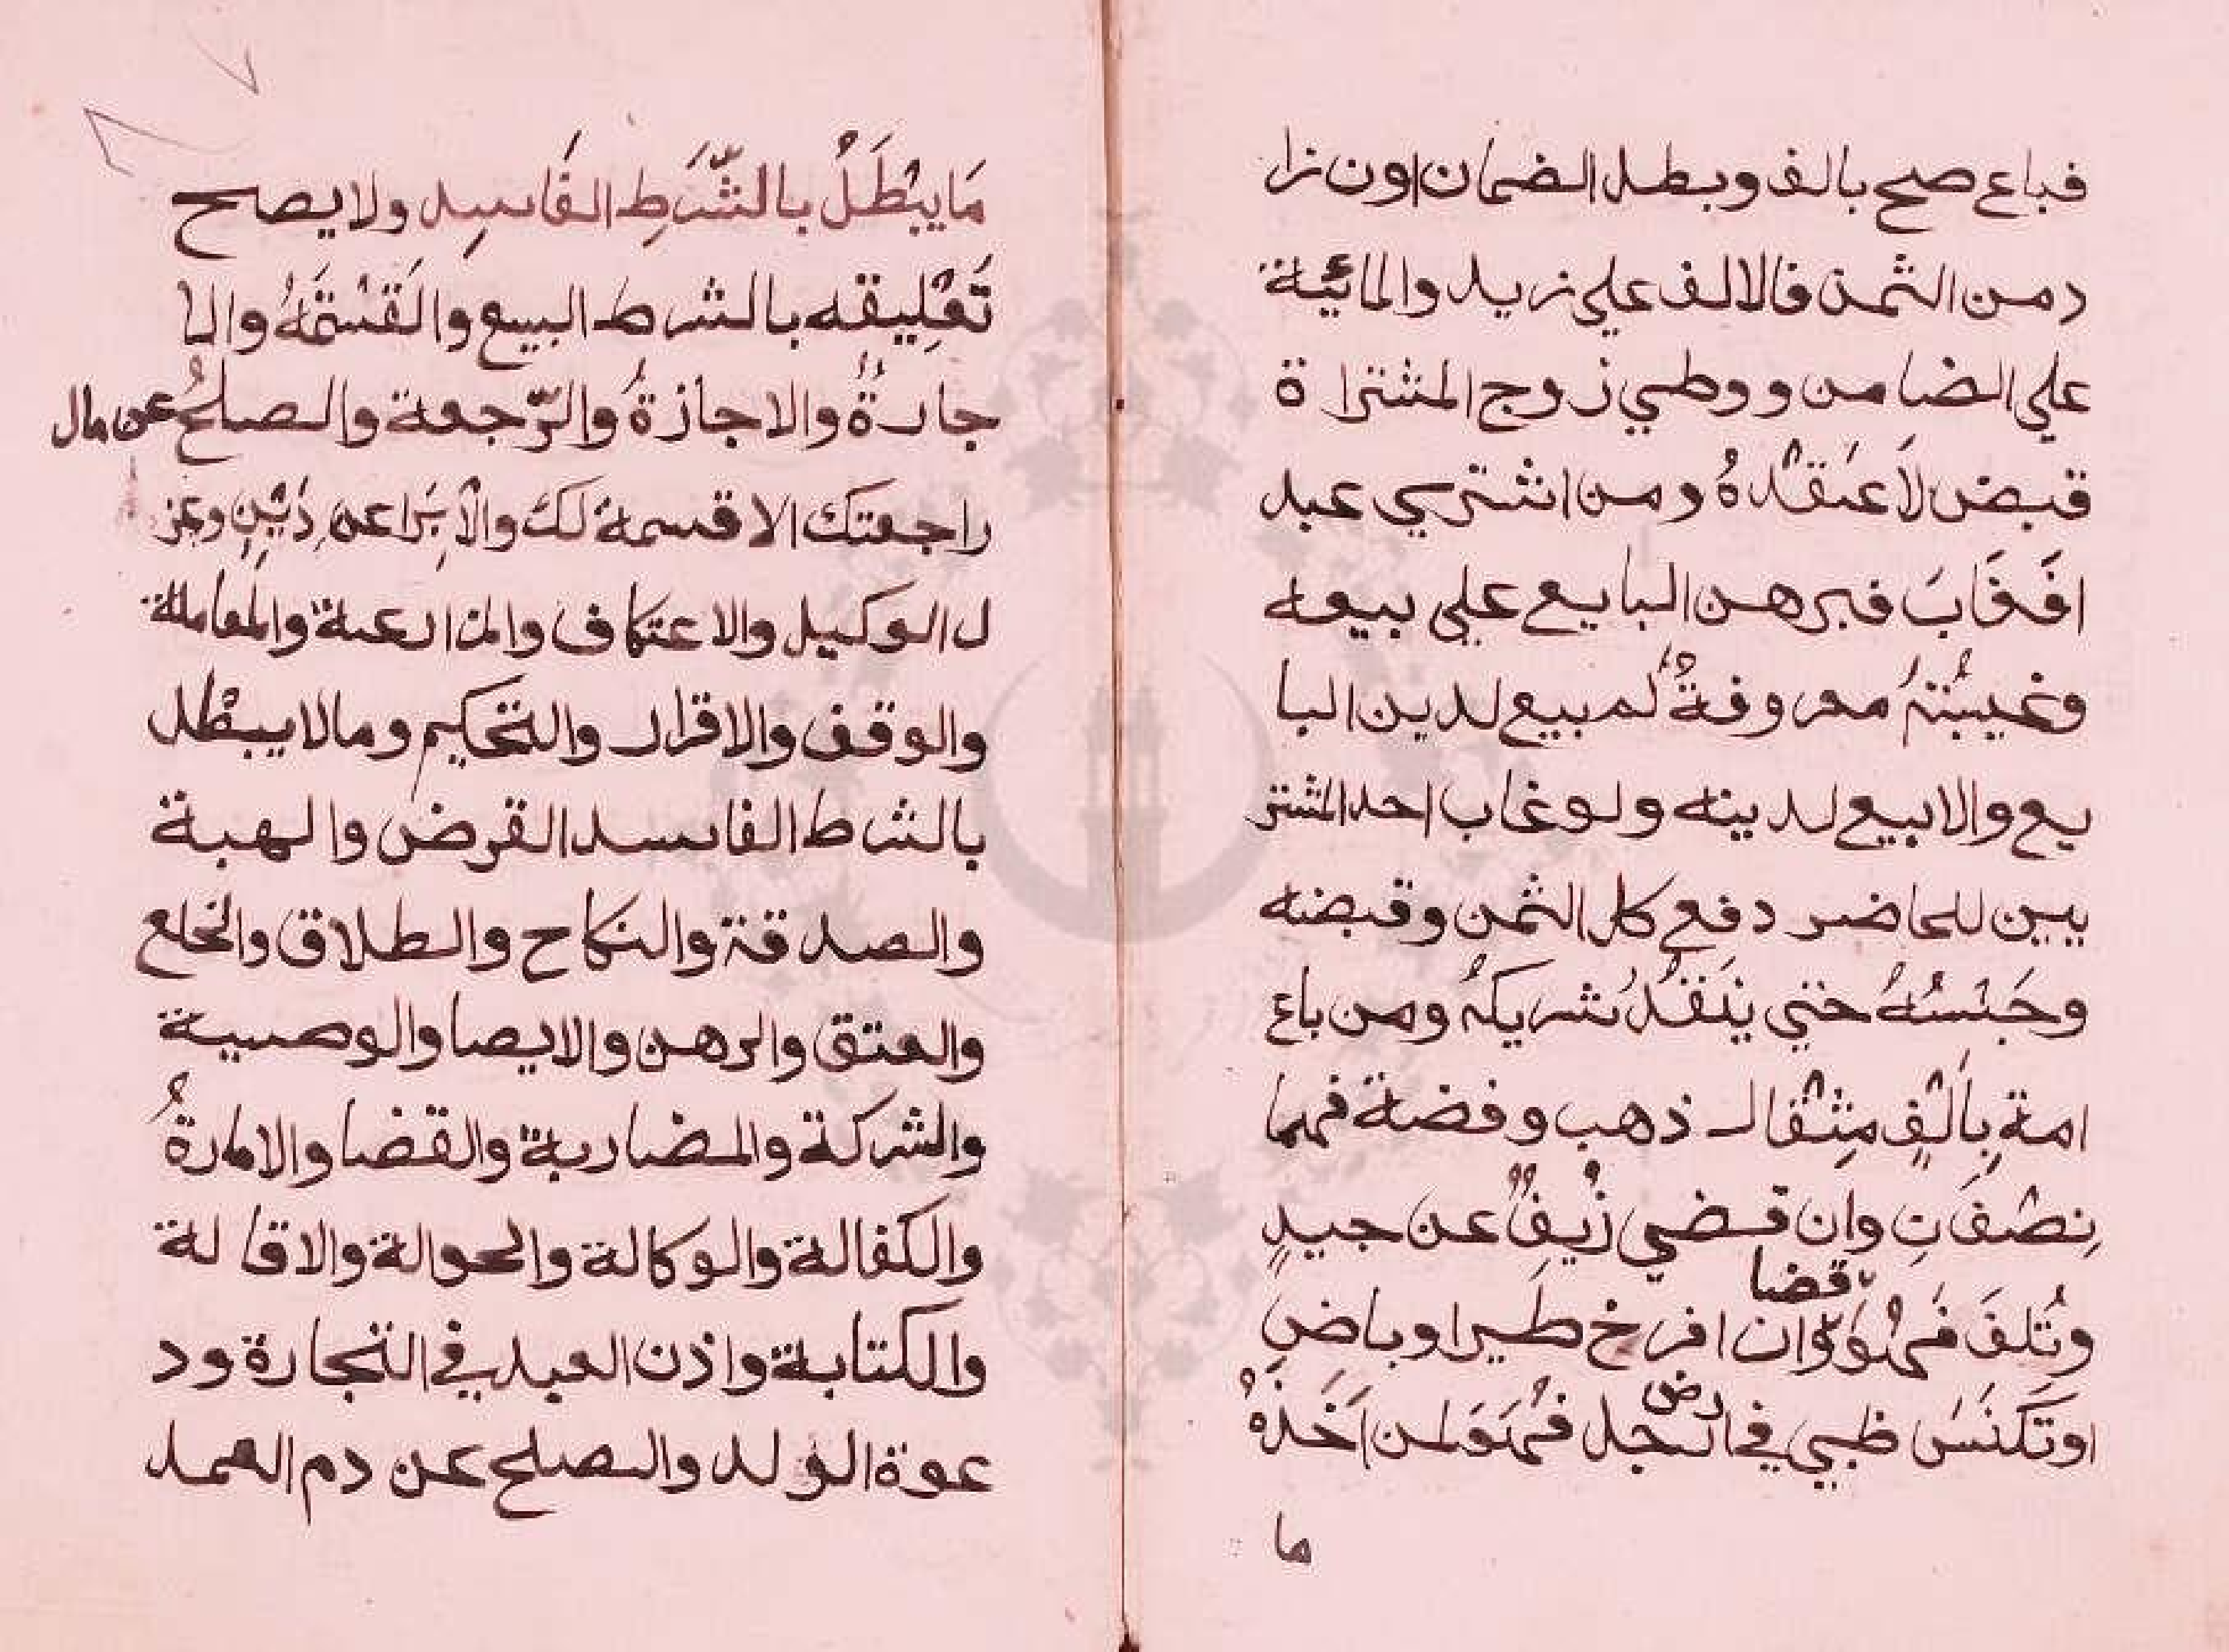 فباع صح بالف وبطل الضمان اون زا
د من الثمن فالالف علي زيد والمائية
علي الضامن ووطي زوج المشتراة
قبض لَا عَقْدُهُ ومن اشتري عبد
افَغَابَ فبرهن البايع علي بيعه
وغيبُتهُ معروفةٌ لم بيع لدين البا
يع والا بيع لدينه ولو غاب احد المشتر
يين للحاضر دفع كل الثمن وقبضه
وحَبْسُهُ حتي ينَقدُ شريكهُ ومن باع
امة بِاَلْفِ مِثْقال ذهب وفضة فهما
نِصْفَانِ وان قضي زُيفٌ عن جيدٍ
وتُلفَ فَهُوَ قضا وان افرخ طير او باض
او تَكَنَسَ ظبي في ارض رجل فهُوَ لمن اَخَذَهُ
ما
مَا يبْطَلُ بالشَّرَطِ الفَاسِدِ ولا يصح
تَعْلِيقه بالشرط البيع والقَسْمَةُ والا
جارةُ والاجازةُ والرّجعة والصلحُ عن مال
راجعتك الا قسمة لك والْاِبَرا عن دَيْنٍ وعز
ل الوكيل والاعتكاف والمزارعة والمُعاملة
والوقف والاقرار والتحكيم وما لا يبْطل
بالشرط الفاسد القرض والهبة
والصدقة والنكاح والطلاق والخلع
والعتق والرهن والايصا والوصية
والشركة والمضاربة والقضا والامارةُ
والكفالة والوكالة والحوالة والاقالة
والكتابة واذن العبد في التجارة ود
عوة الولد والصلح عن دم العمد